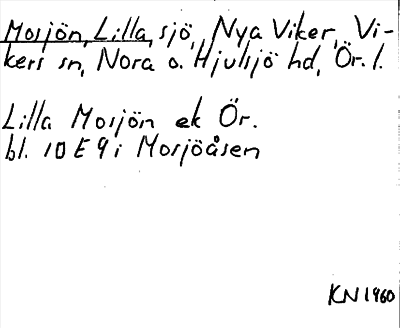 Mosjön, Lilla, sjö, Nya Viker, Vi-
kers sn, Nora o. Hjulsjö hd, Ör. l.
Lilla Mosjön ek Ör.
bl. 10 E 9 i Mosjöåsen
KN 1960